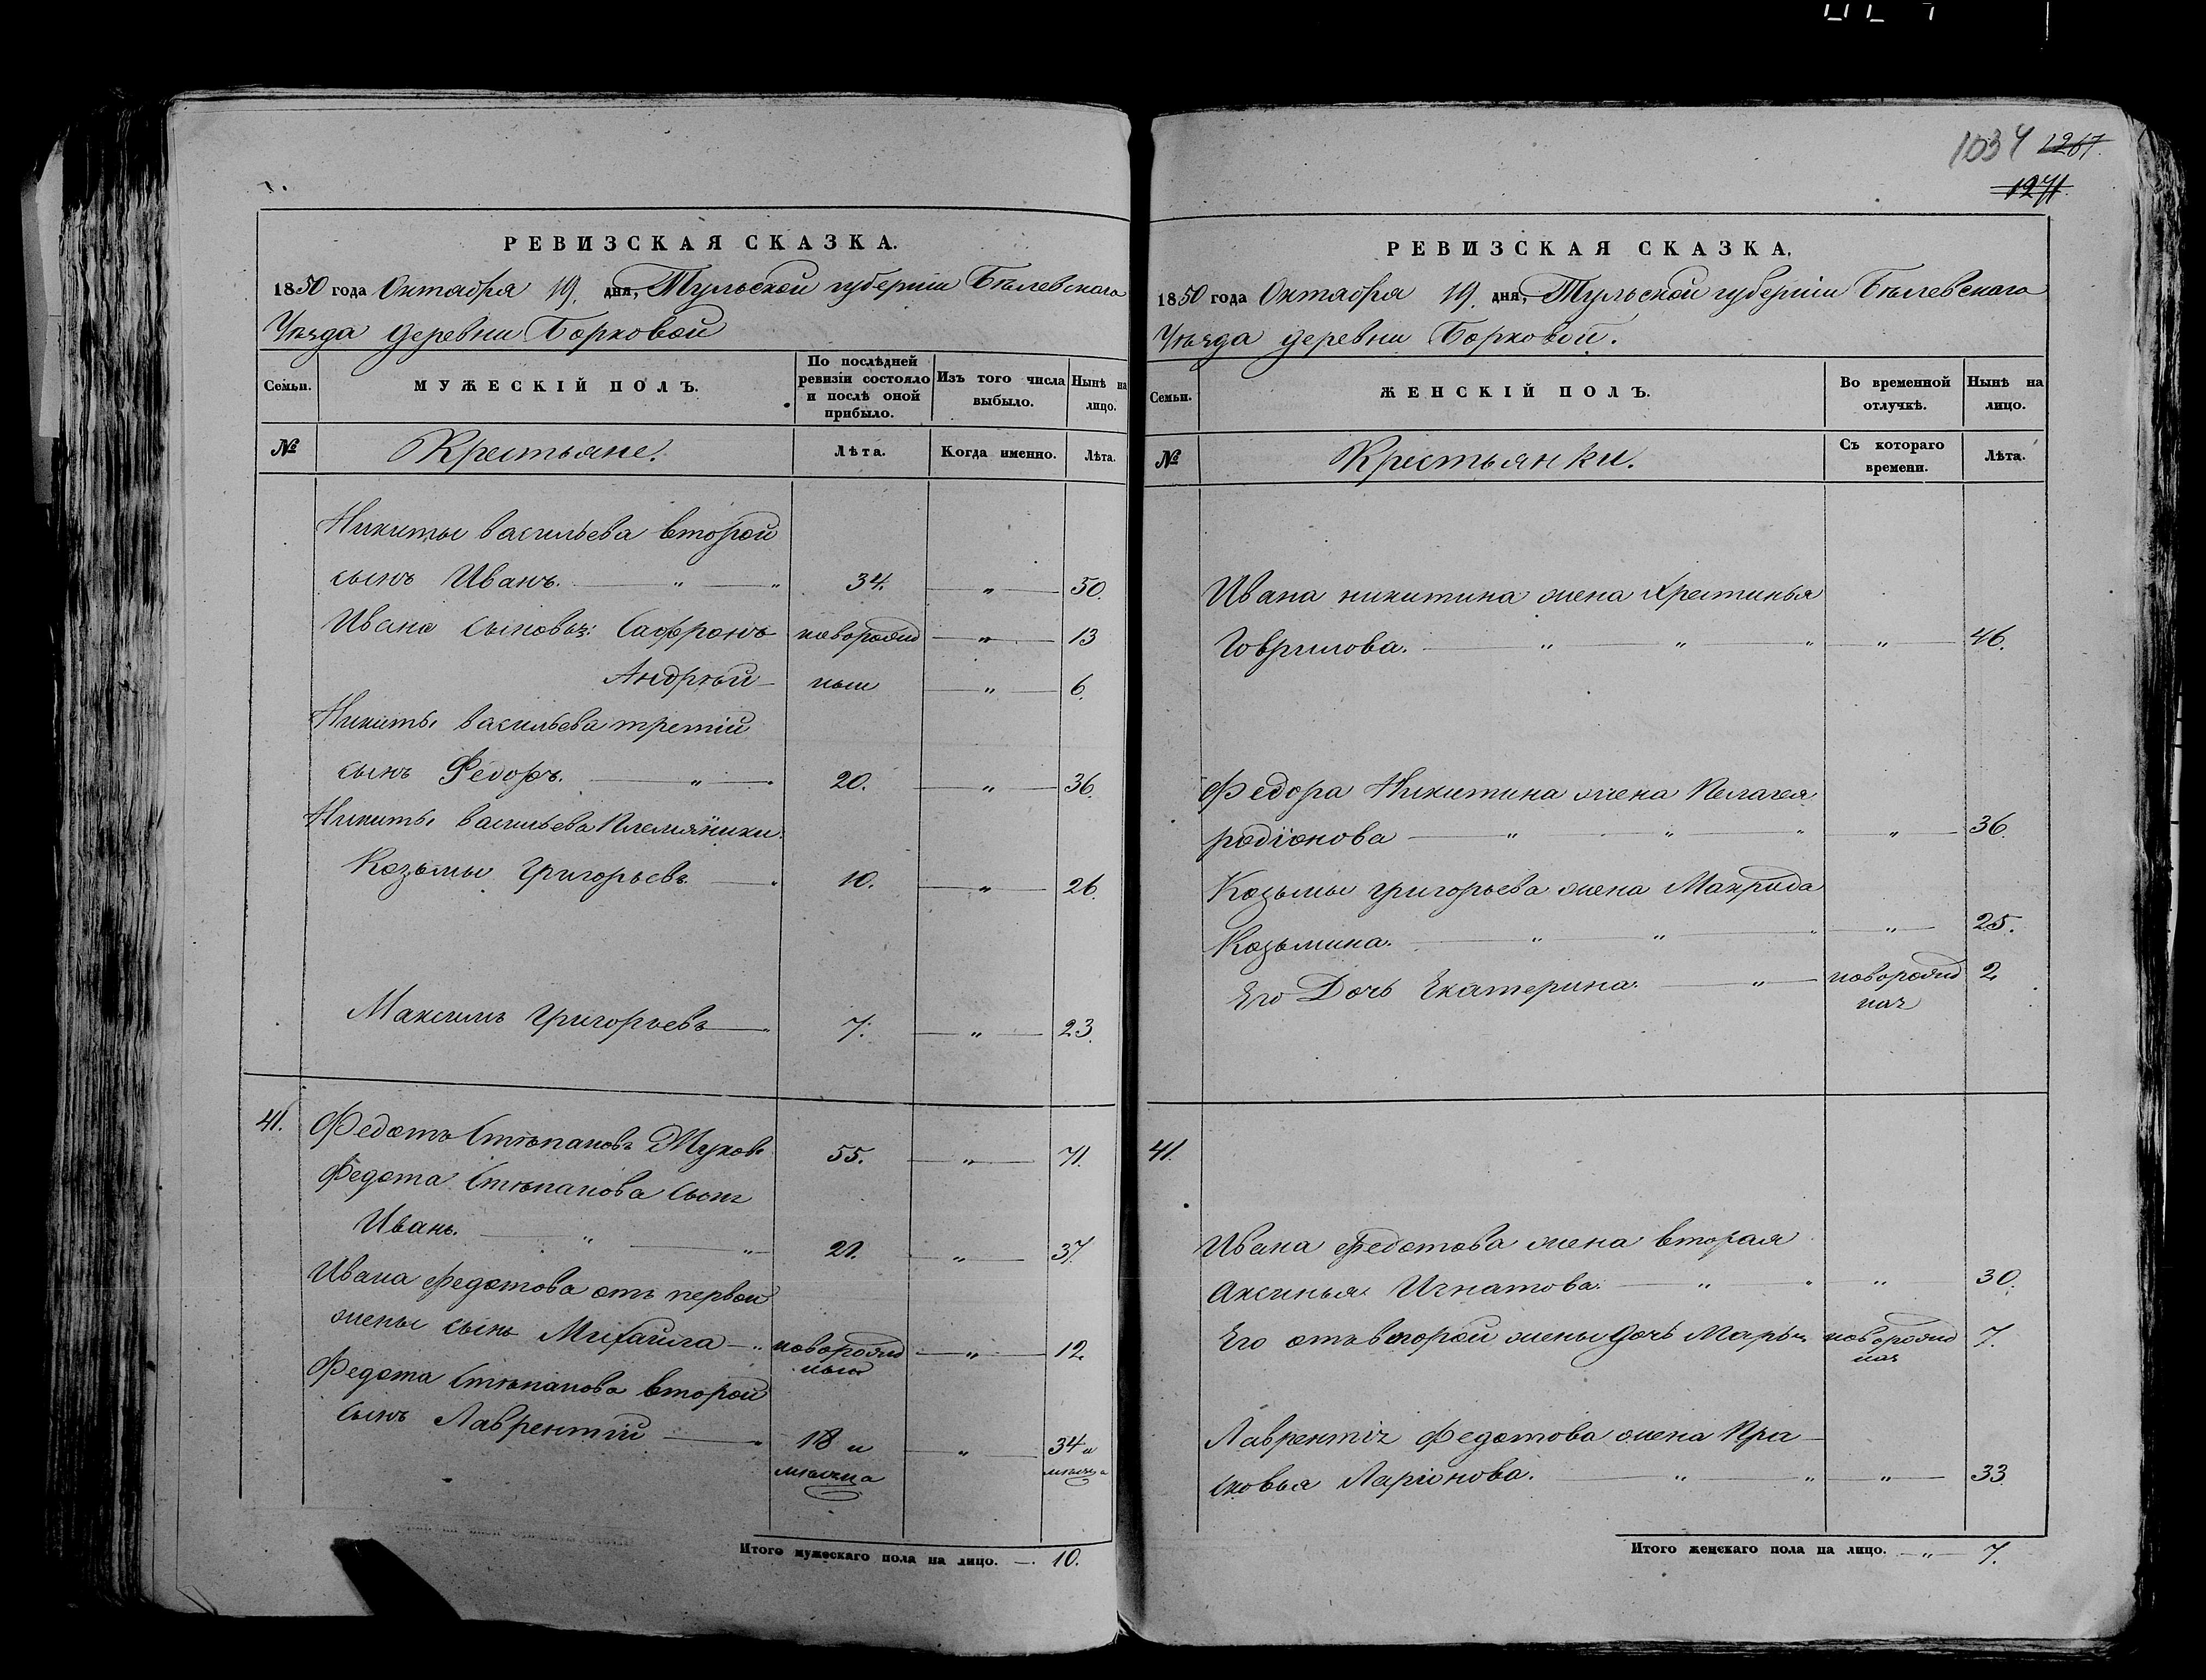 РЕВИЗСКАЯ СКАЗКА.
1850 года Октября 19. дня, Тульской губерніи Бѣлевскаго
Уѣзда деревни Борковой
Семьи.
МУЖЕСКІЙ ПОЛЪ.
По послѣдней
ревизіи состояло
и послѣ оной
прибыло.
Изъ того числа
выбыло.
Нынѣ на
лицо.
№
Крестьяне.
Лѣта.
Когда именно.
Лѣта.
Никиты васильева второй
сынъ Иванъ. — „ — „ 34. — „ — 50.
Ивана сыновья: Сафронъ новорожд — „ — 13
Андрѣй — ные — „ — 6.
Никиты васильева третій
сынъ Федоръ. — „ — 20. — „ — 36.
Никиты васильева племянники:
Козьмы Григорьевъ — „ 10. — „ — 26.
Максимъ Григорьевъ — „ 7. — „ — 23.
41. Федотъ Степановъ Жуковъ 55. — „ — 71.
Федота Степанова сынъ
Иванъ. — „ — „ 21. — „ — 37.
Ивана Федотова отъ первой
жены сынъ Михайла — „ новорожд — „ — 12.
ный
Федота Степанова второй
сынъ Лаврентій — „ 18 и — „ — 34 и
мѣсяца мѣсяца
Итого мужескаго пола на лицо. — 10.
1034 1267.
1271.
РЕВИЗСКАЯ СКАЗКА.
1850 года Октября 19 дня, Тульской губерніи Бѣлевскаго
Уѣзда деревни Борковой.
Семьи.
ЖЕНСКІЙ ПОЛЪ.
Во временной
отлучкѣ.
Нынѣ на
лицо.
№
Крестьянки.
Съ котораго
времени.
Лѣта.
Ивана никитина жена Хрестинья
Говрилова. — „ — „ — „ — „ — 46.
Федора Никитина жена Пелагея
родіонова — „ — „ — „ — „ — 36.
Козьмы григорьева жена Макрида
Козьмина. — „ — „ — „ — „ — 25.
Его Дочь Екатерина. — „ — новорожд 2
ная
41.
Ивана Федотова жена вторая
Аксинья Игнатова. — „ — „ „ 30.
Его отъ второй жены дочь Марья новорожд 7.
ная
Лаврентія Федотова жена Пра-
сковья Ларіонова. — „ — „ — „ — 33
Итого женскаго пола на лицо. — „ — 7.